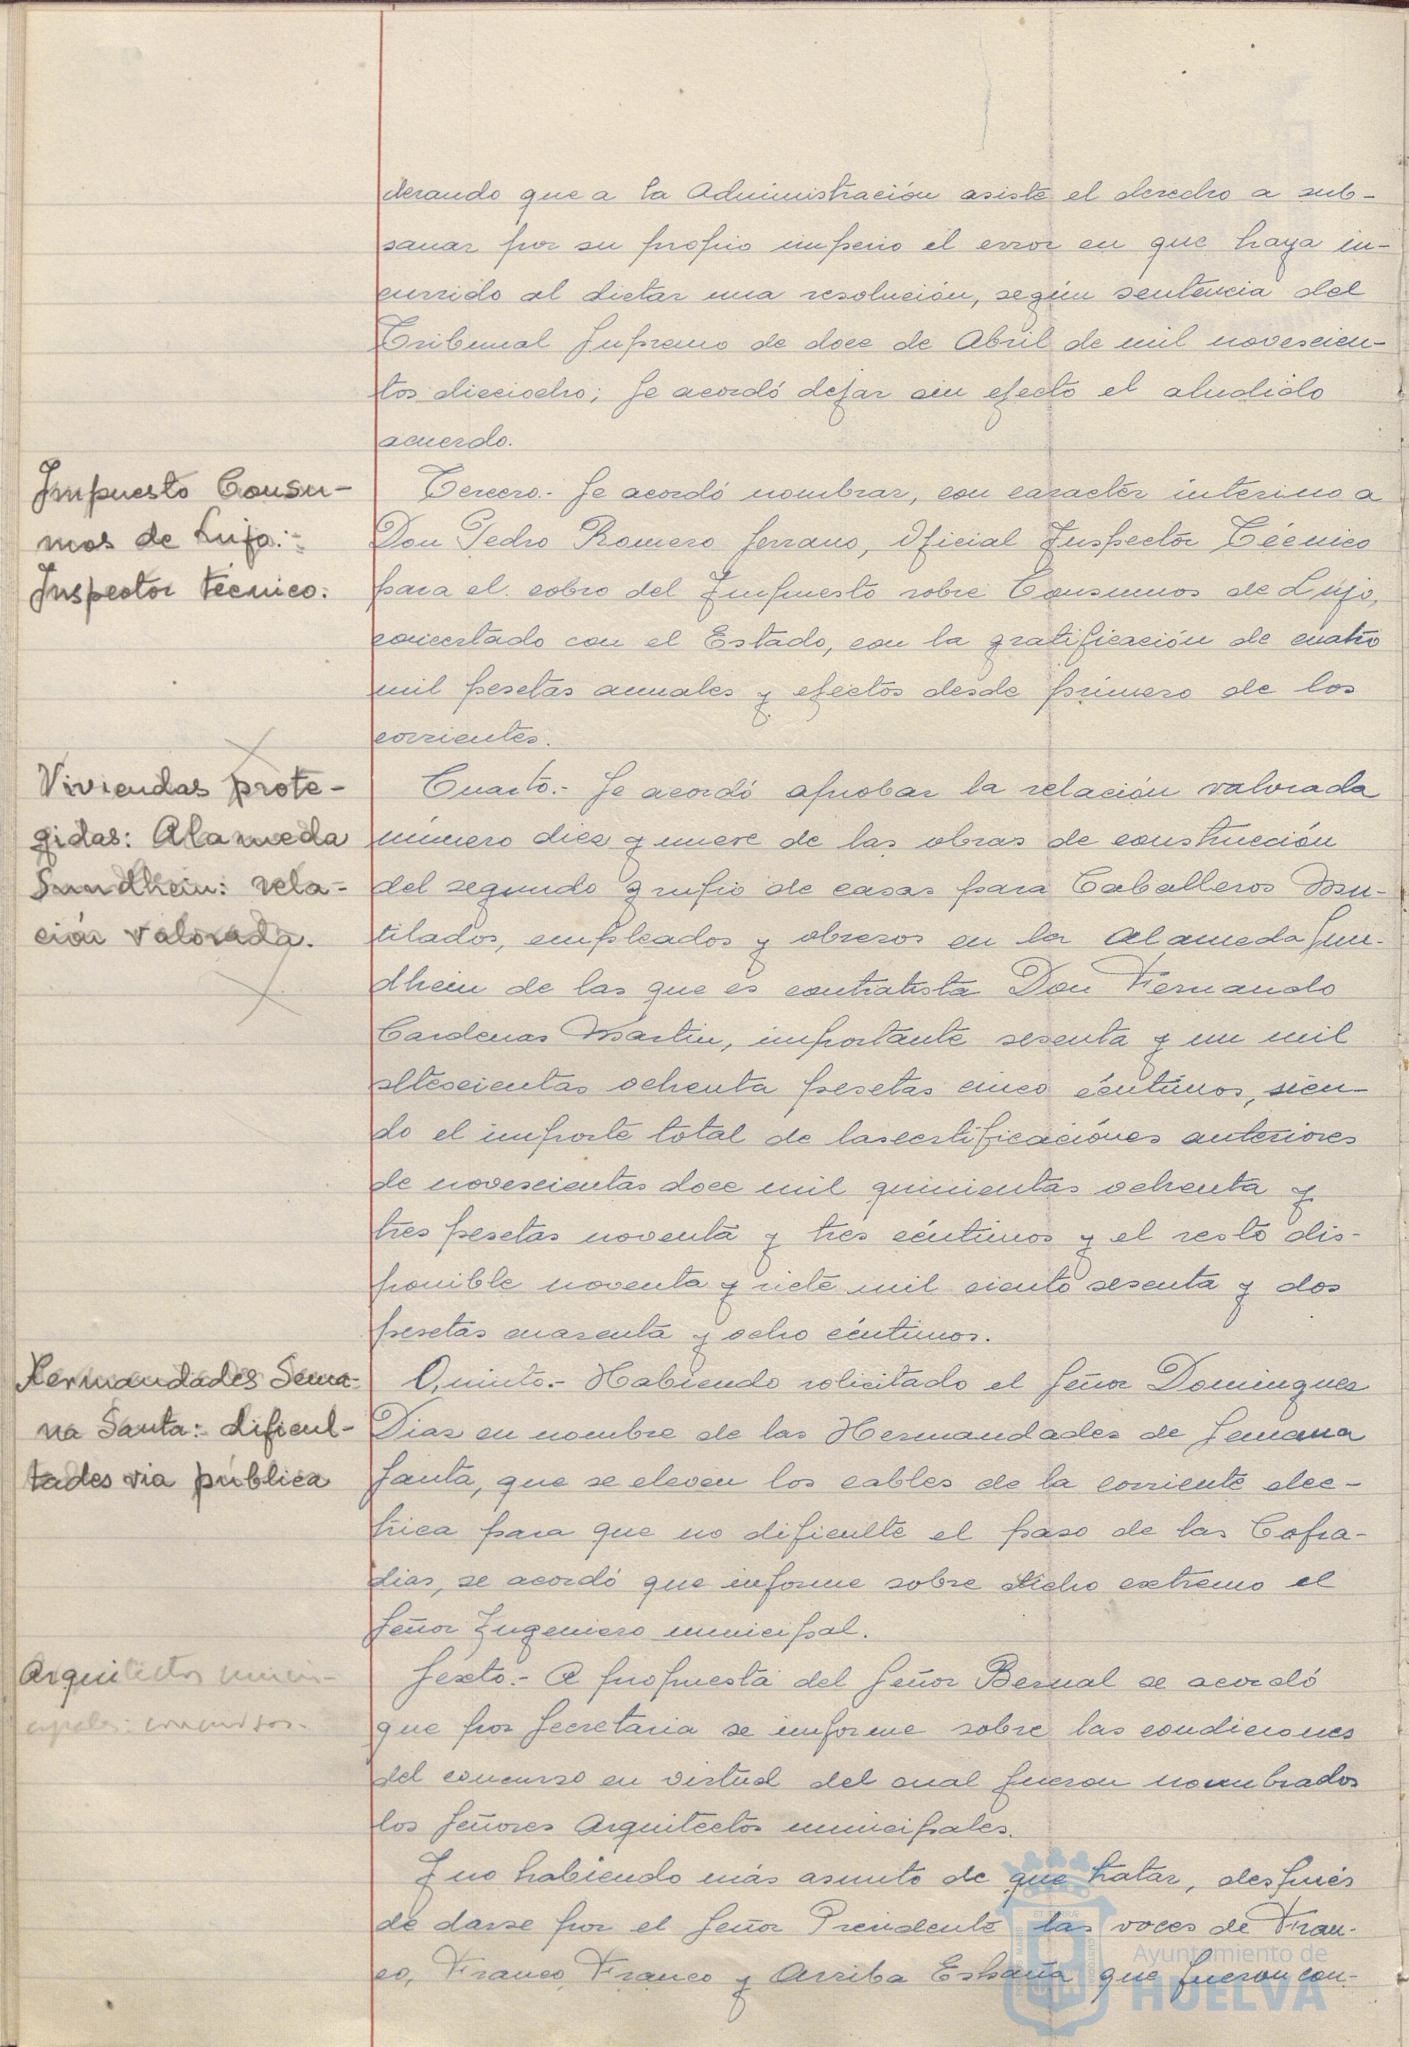 derando que a la Administración asiste el derecho a sub-
sanar por su propio imperio el error en que haya in-
currido al dictar una resolución, según sentencia del
Tribunal Supremo de doce de Abril de mil novescien-
tos dieciocho; Se acordó dejar sin efecto el aludido
acuerdo.
Impuesto Consu-
mos de Lujo:-
Inspector técnico.
Tercero.- Se acordó nombrar, con caracter interino a
Don Pedro Romero Serrano, Oficial Inspector Técnico
para el cobro del Impuesto sobre Consumos de Lujo,
concertado con el Estado, con la gratificación de cuatro
mil pesetas anuales y efectos desde primero de los
corrientes.
Viviendas prote-
gidas: Alameda
Sundhein: rela-
ción valorada.
Cuarto.- Se acordó aprobar la relación valorada
número diez y nueve de las obras de construcción
del segundo grupo de casas para Caballeros Mu-
tilados, empleados y obreros en la Alameda Sun-
dhein de las que es contratista Don Fernando
Cardenas Martin, importante sesenta y un mil
setescientas ochenta pesetas cinco céntimos, sien-
do el importe total de las certificaciónes anteriores
de novescientas doce mil quinientas ochenta y
tres pesetas noventa y tres céntimos y el resto dis-
ponible noventa y siete mil ciento sesenta y dos
pesetas cuarenta y ocho céntimos.
Hermandades Sema-
na Santa: dificul-
tades via pública
Quinto.- Habiendo solicitado el Señor Dominguez
Diaz en nombre de las Hermandades de Semana
Santa, que se eleven los cables de la corriente elec-
trica para que no dificulte el paso de las Cofra-
dias, se acordó que informe sobre dicho extremo el
Señor Ingeniero municipal.
Arquitectos muni-
cipales: concursos.
Sexto.- A propuesta del Señor Bernal se acordó
que por Secretaria se informe sobre las condiciones
del concurso en virtud del cual fueron nombrados
los Señores Arquitectos municipales.
Y no habiendo más asunto de que tratar, después
de darse por el Señor Presidente las voces de Fran-
co, Franco, Franco y Arriba España que fueron con-
Ayuntamiento de
HUELVA